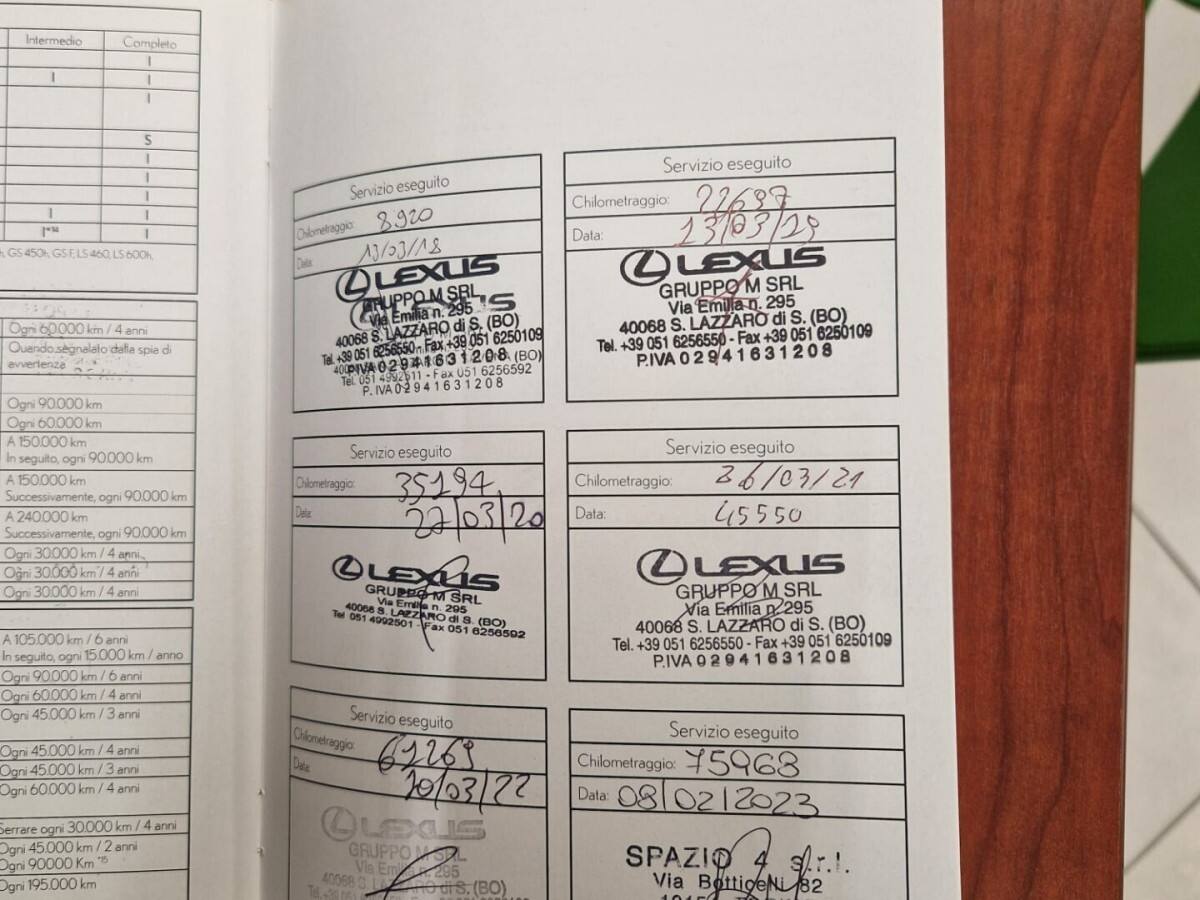 Intermedio Completo
I
I I
I
S
I
I
I
I I
I*14 I
GS 450h, GS F, LS 460, LS 600h,
Ogni 60.000 km / 4 anni
Quando segnalato dalla spia di
avvertenza
Ogni 90.000 km
Ogni 60.000 km
A 150.000 km
In seguito, ogni 90.000 km
A 150.000 km
Successivamente, ogni 90.000 km
A 240.000 km
Successivamente, ogni 90.000 km
Ogni 30.000 km / 4 anni
Ogni 30.000 km / 4 anni
Ogni 30.000 km / 4 anni
A 105.000 km / 6 anni
In seguito, ogni 15.000 km / anno
Ogni 90.000 km / 6 anni
Ogni 60.000 km / 4 anni
Ogni 45.000 km / 3 anni
Ogni 45.000 km / 4 anni
Ogni 45.000 km / 3 anni
Ogni 60.000 km / 4 anni
Serrare ogni 30.000 km / 4 anni
Ogni 45.000 km / 2 anni
Ogni 90000 Km *15
Ogni 195.000 km
Servizio eseguito
Chilometraggio: 8920
Data: 13/03/18
LEXUS
GRUPPO M SRL
Via Emilia n. 295
40068 S. LAZZARO di S. (BO)
Tel. +39 051 6256550 - Fax +39 051 6250109
P.IVA 02941631208
(BO)
Tel. 051 4992511 - Fax 051 6256592
P. IVA 02941631208
Servizio eseguito
Chilometraggio: 22697
Data: 13/03/19
LEXUS
GRUPPO M SRL
Via Emilia n. 295
40068 S. LAZZARO di S. (BO)
Tel. +39 051 6256550 - Fax +39 051 6250109
P.IVA 02941631208
Servizio eseguito
Chilometraggio: 35194
Data: 22/03/20
LEXUS
GRUPPO M SRL
Via Emilia n. 295
40068 S. LAZZARO di S. (BO)
Tel 051 4992501 - Fax 051 6256592
Servizio eseguito
Chilometraggio: 26/03/21
Data: 45550
LEXUS
GRUPPO M SRL
Via Emilia n. 295
40068 S. LAZZARO di S. (BO)
Tel. +39 051 6256550 - Fax +39 051 6250109
P.IVA 02941631208
Servizio eseguito
Chilometraggio: 61269
Data: 20/03/22
LEXUS
GRUPPO M SRL
Via Emilia n. 295
40068 S. LAZZARO di S. (BO)
Servizio eseguito
Chilometraggio: 75968
Data: 08/02/2023
SPAZIO 4 s.r.l.
Via Botticelli 82